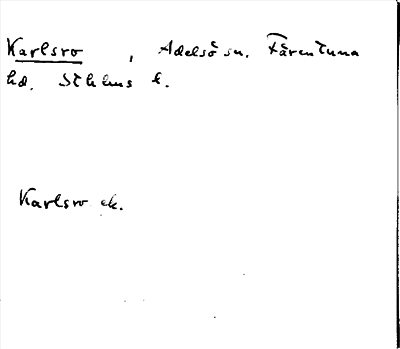 Karlsro , Adelsö sn. Färentuna
hd. Sthlms l.
Karlsro ek.